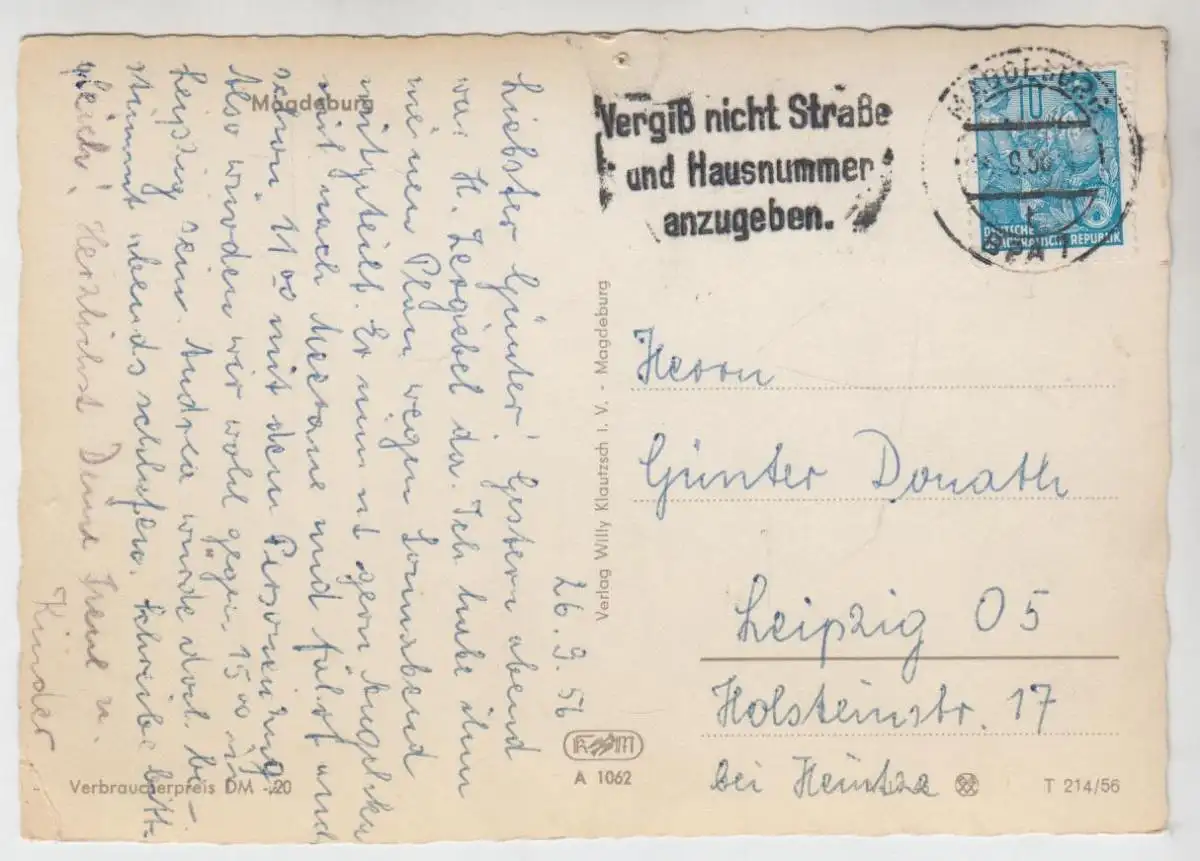 Magdeburg
26.9.56
Liebster Günter! Gestern abend
war H. Zergiebel da. Ich habe ihm
meinen Plan wegen Sonnabend
mitgeteilt. Er nimmt gern
mit nach Meerane und fährt
schon 11⁰⁰ mit dem Personenzug
Also würden wir wohl gegen 15⁰⁰ in
Leipzig sein. Andrea würde dort be-
stimmt abends schlafen. Schreibe bitte
gleich! Herzlichst Deine Irene u.
Kinder
Verbraucherpreis DM -.20
Verlag Willy Klautzsch I. V. - Magdeburg
K M
A 1062
Vergiß nicht Straße
und Hausnummer
anzugeben.
MAGDEBURG
9.56
BPA 1
10
DEUTSCHE
DEMOKRATISCHE REPUBLIK
Herrn
Günter Donath
Leipzig O5
Holsteinstr. 17
bei Heintze
T 214/56